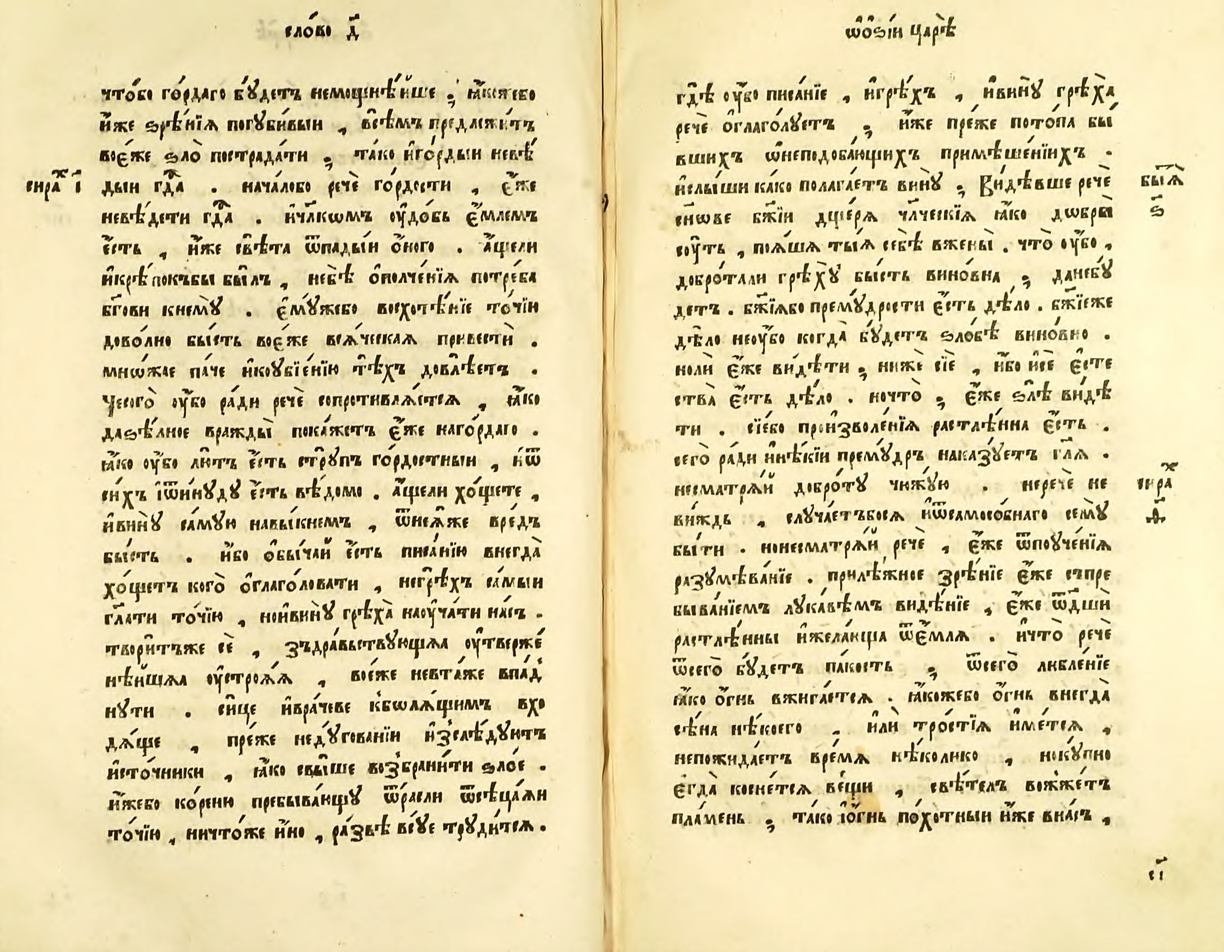 сло́во д҃
что́бо го́рдаго бꙋ́детъ немощнѣ́йше ; ꙗ҆́коѧ́ебо
и҆́же ѕрѣ́нїѧ погꙋби́выи , всѣ́мъ предлежи́тъ
вое́же ѕло̀ пострада́ти ; та́ко и҆го́рдыи невѣ́
сира́х і҃
дыи гд҇а . нача́лобо речѐ го́рдости , є҆́же
невѣ́дети гд҇а . и҆чл҃кѡмъ ᲂу҆до́бь є҆́млемъ
є҆́сть , и҆́же свѣ́та ѿпа́дыи ѻ҆́ного . а҆́щели
и҆крѣ́покъбы бы́лъ , небѣ̀ ѻ҆полче́нїѧ потре́ба
бг҃ови кнемꙋ̀ . є҆мꙋ́жебо восхотѣ́нїе то́чїи
дово́лно бы́сть вое́же всѧ́ческаѧ привестѝ .
мно́жае па́че и҆кꙋбїе́нїю тѣ́хъ довлѣ́етъ .
чесого̀ ᲂу҆́бо ра́ди речѐ сопротивлѧ́етсѧ , ꙗ҆́ко
даѕѣ́лное вражды̀ пока́жетъ є҆́же наго́рдаго .
ꙗ҆́ко ᲂу҆́бо лю́тъ є҆́сть стрꙋ́пъ го́рдостныи , и҆ѿ
си́хъ і҆ѿинꙋ́дꙋ є҆́сть вѣ́домо . а҆́щели хо́щете ,
и҆винꙋ̀ са́мꙋю навы́кнемъ , ѿнеѧ́же вре́дъ
бы́сть . и҆́бо ѻ҆бы́чай є҆́сть писа́нїю внегда̀
хо́щетъ кого̀ ѻ҆глаго́ловати , негрѣ́хъ са́мыи
гл҃ати то́чїю , нои҆винꙋ̀ грѣха̀ наꙋча́ти на́съ .
твори́тъже сѐ , здра́вьствꙋющаѧ ᲂу҆твержє́
нѣ́йшаѧ ᲂу҆строѧ́ѧ , вое́же невта́же впад
нꙋ́ти . си́це и҆вра́чеве кболѧ́щимъ вхо
дѧ́ще , пре́же недꙋ́гованїи и҆зслѣ́дꙋютъ
и҆сто́чники , ꙗ҆́ко свы́ше возбрани́ти ѕло́е .
и҆́жебо ко́реню пребыва́ющꙋ ѿрасли ѿсѣца́ѧи
то́чїю , ничто́же и҆́но , ра́звѣ всꙋ́е трꙋ́дитсѧ .
ѡ҆ѻ҆зі́и царѣ̀
гдѣ̀ ᲂу҆́бо писа́нїе , и҆грѣ́хъ , и҆винꙋ̀ грѣха̀
речѐ ѻ҆глаго́лꙋетъ ; и҆́же пре́же пото́па бы́
вшихъ ѡ҆неподоба́ющихъ примѣше́нїихъ .
и҆слы́ши ка́ко полага́етъ винꙋ̀ ; Ви́дѣвше речѐ
бытїѧ̀ ѕ҃
сн҃ове бж҃їи дще́рѧ чл҃ческїѧ ꙗ҆́ко дѡбры̀
сꙋ́ть , поѧ́шѧ ты́ѧ себѣ̀ вжены̀ . что̀ ᲂу҆́бо ,
добротали грѣхꙋ̀ бы́сть вино́вна ; данебꙋ́
детъ . бж҃їѧбо премꙋ́дрости є҆́сть дѣ́ло . бж҃їеже
дѣ́ло неᲂу҆́бо когда̀ бꙋ́детъ ѕло́бѣ вино́вно .
ноли є҆́же ви́дѣти ; ниже сїѐ , и҆́бо и҆сѐ є҆сте
ства̀ є҆́сть дѣ́ло . ночто̀ ; є҆́же ѕлѣ̀ ви́дѣ
ти . сїе́бо произволе́нїѧ растлѣ́нна є҆́сть .
сего̀ ра́ди и҆нѣ́кїи премꙋ́дръ наказꙋ́етъ гл҃ѧ .
несматрѧ́й добротꙋ̀ чю́жꙋю . неречѐ не
сира́х ѳ҃
ви́ждь , слꙋча́етъбосѧ и҆ѿсамосо́бнаго семꙋ̀
бы́ти . нонесматрѧ́й речѐ , є҆́же ѿпоꙋче́нїѧ
разꙋмѣва́нїе . прилѣ́жное зрѣ́нїе є҆́же съпре
быва́нїемъ лꙋка́вѣмъ ви́дѣнїе , є҆́же ѿдш҃и
растлѣ́нны и҆жела́юща ѿє҆́млѧ . и҆что̀ речѐ
ѿсего̀ бꙋ́детъ па́кость ; ѿсего̀ любле́нїе
ꙗ҆́ко ѻ҆́гнь вжига́етсѧ . ꙗ҆́кожебо ѻ҆́гнь внегда̀
сѣ́на нѣ́коего , и҆лѝ тро́стїѧ и҆́метсѧ ,
непожида́етъ вре́мѧ нѣ́колико , нокꙋ́пно
є҆гда̀ косне́тсѧ ве́щи , свѣ́телъ возжже́тъ
пла́мень ; та́ко і҆ѻ҆́гнь по́хотныи и҆́же вна́съ ,
є҃і